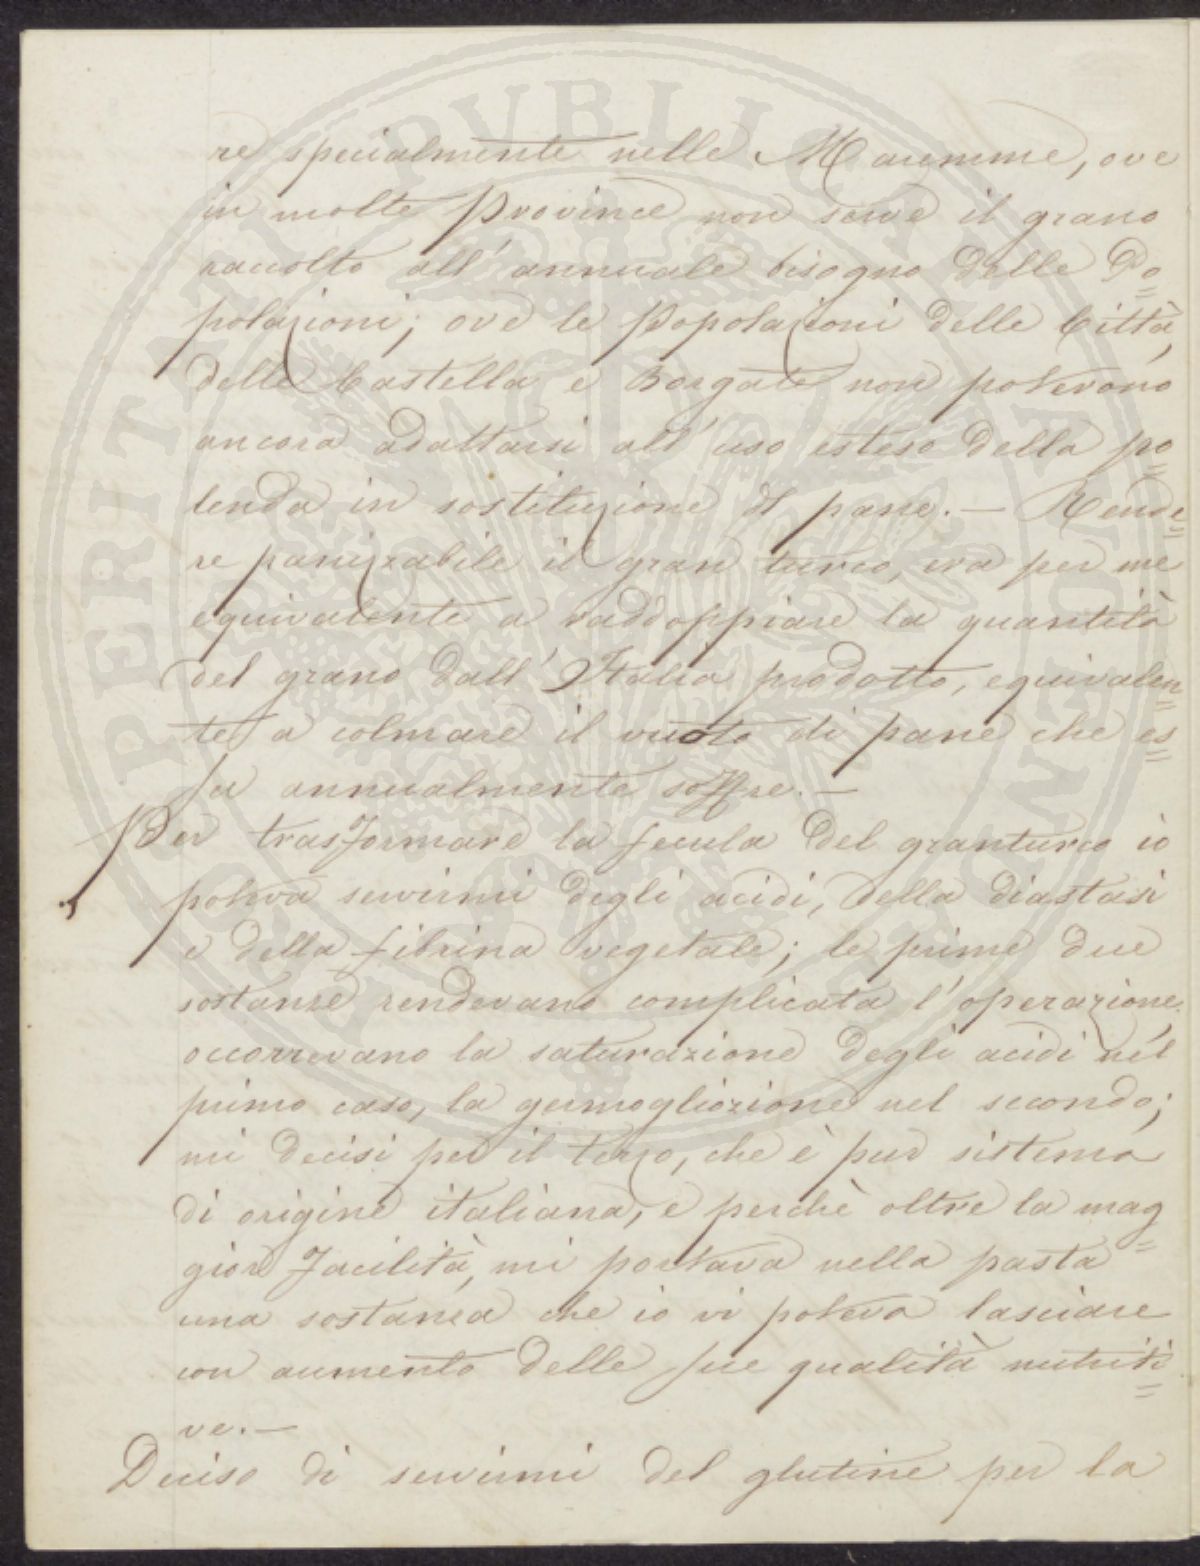 re specialmente nelle Maremme, ove
in molte Province non serve il grano
raccolto all'annuale bisogno delle Po=
polazioni; ove le Popolazioni delle Città,
delle Castella e Borgate non potevano
ancora adattarsi all'uso esteso della po=
lenda in sostituzione di pane. — Rende=
re panizzabile il gran turco, era per me
equivalente a raddoppiare la quantità
del grano dall'Italia prodotto, equivalen=
te a colmare il vuoto di pane che es=
sa annualmente soffre. —
Per trasformare la fecula del granturco io
poteva servirmi degli acidi, della diastasi
e della fibrina vegetale; le prime due
sostanze rendevano complicata l'operazione
occorrevano la saturazione degli acidi nel
primo caso, la germogliazione nel secondo;
mi decisi per il terzo, che è pur sistema
di origine italiana, e perchè oltre la mag=
gior facilità, mi portava nella pasta
una sostanza che io vi poteva lasciare
con aumento delle sue qualità nutriti=
ve. —
Deciso di servirmi del glutine per la
PERITATI PVBLICAE